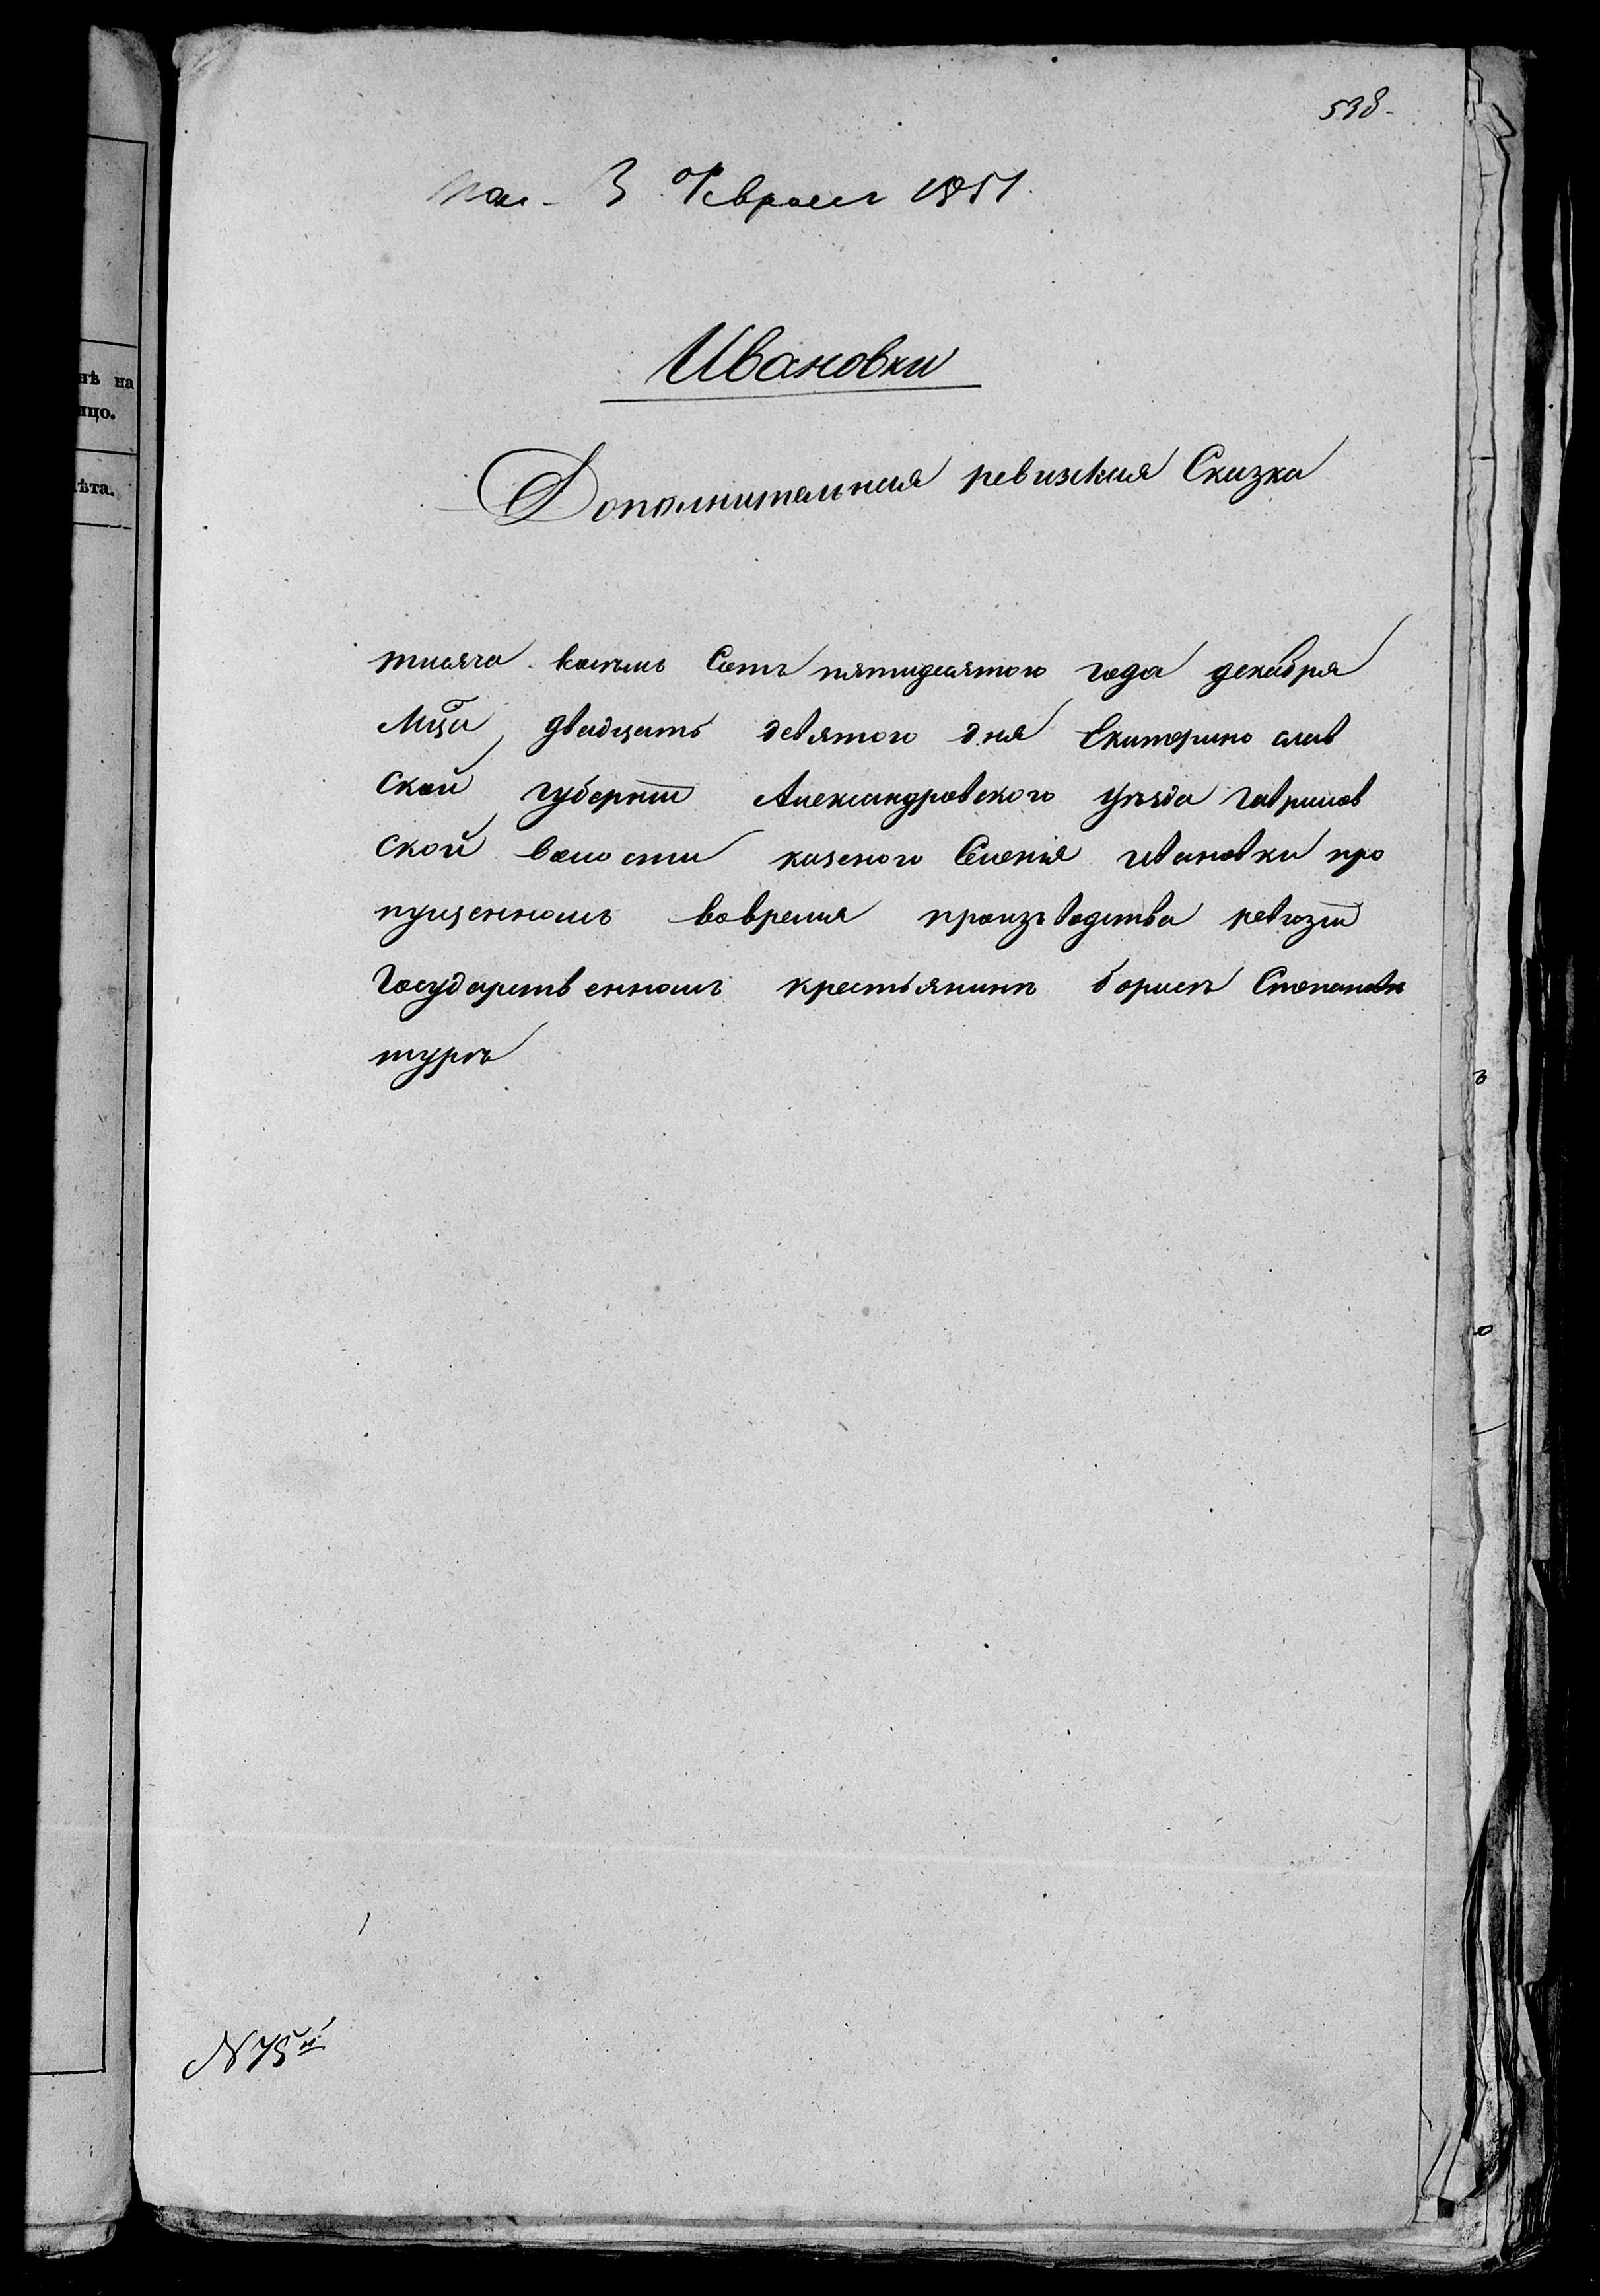 538.
3 Февраля 1851.
Ивановки
Дополнительная ревизкая Сказка
тисяча восемь Сотъ пятидесятого года декабря
Мца двадцать девятого дня Екатеринослав
ской губерніи Александровского уѣзда Гаврилов
ской волости казеного Селенія ивановки про
пущенномъ вовремя произъводства ревизіи
Государственномъ крестьянинѣ борисѣ Степановѣ
турѣ
N 75й
нѣ на
ицо.
ѣта.